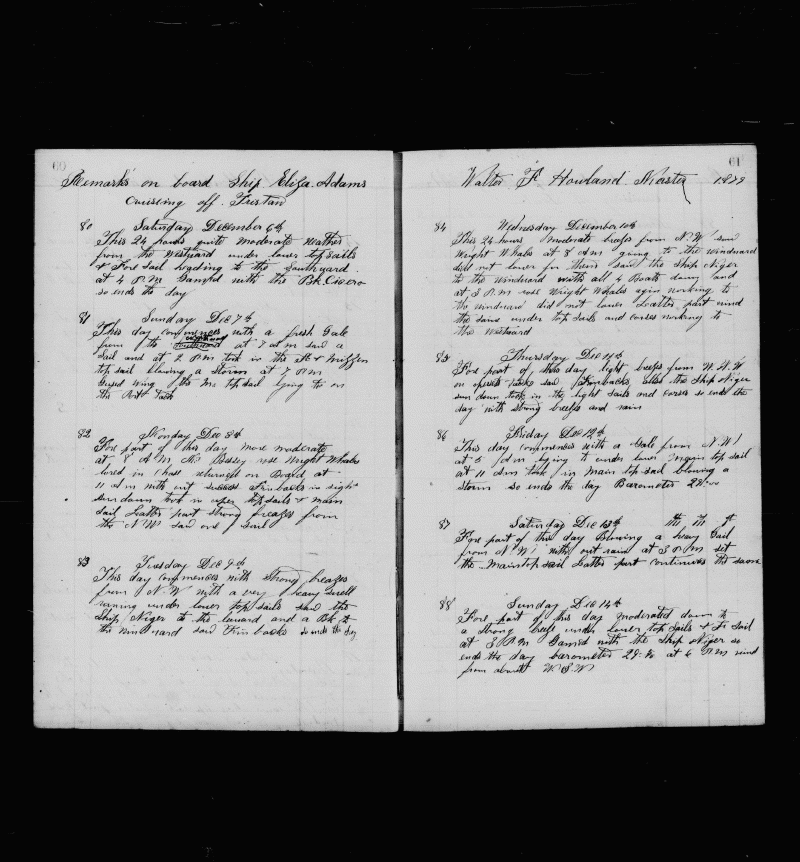 60
Remarks on board Ship Eliza Adams
Cruising off Tristan
80 Saturday December 6th
This 24 hours quite moderate weather
from the Westward under lower topsails
& Fore Sail heading to the Southward
at 4 P.M. Gam'd with the Bk. Cicero
so ends the day
81 Sunday Dec 7th
This day commences with a fresh Gale
from the at 7 A m saw a
Sail and at 2 P.m took in the & Mizzen
topsail blowing a Storm at 7 P m
wing the Mn topsail lying to on
the Port tack
82 Monday Dec 8th
Fore part of this day more moderate
at A M Mr Bassey rose Wright Whales
lored in Chase returned on Board at
11 A m with out success Finbacks in sight
Sundown took in uper topsails & main
Sail Latter part strong breazes from
the N.W. saw one Sail
83 Tuesday Dec 9th
This day commences with Strong breazes
from N.W with a very heavy swell
running under lower topsails saw the
Ship Niger to the leward and a Bk to
the windward saw Finbacks so ends the day
61
Walter F Howland Master 1879
84 Wednesday December 10th
This 24 hours moderate breeses from N.W. saw
Wright Whales at 8 A m going to the windward
did not lower for them saw the Ship Niger
to the windward with all 4 Boats down and
at 3 P.m rose Wright Whales agin working to
the windward did not lower Latter part wind
the same under topsails and corses working to
the Westward
85 Thursday Dec 11th
Fore part of this day light breeses from W.N.W
on oposite tacks saw Finbacks also the Ship Niger
sun down took in the light Sails and corses so ends the
day with strong breeses and rain
86 Friday Dec 12th
This day commences with a Gale from N.W.
at 5 A m lying to under lower main topsail
at 11 A m took in main topsail blowing a
Storm so ends the day Barometer
87 Saturday Dec 13th
Fore part of this day Blowing a heavy Gail
from N.W. with out rain at 3 P m set
the Maintopsail Latter part continues the same
88 Sunday Dec 14th
Fore part of this day moderated down to
a strong breese under lower topsails & Fr Sail
at 3 P.m Gamed with the Ship Niger so
ends the day barometer at 6 P.m wind
from about W.S.W